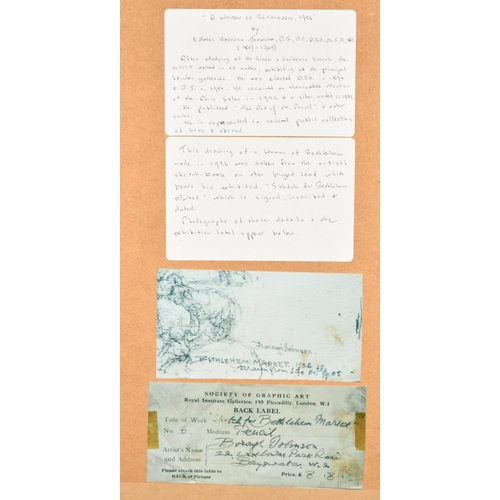 "A Woman of Bethlehem, 1936"
by
After studying at the Slade & Herkomer Schools, the
artist worked in all modes, exhibiting at the principal
London galleries. He was elected
in 19 He received an Honourable Mention
at the Paris Salon in & a silver medal in
He published "The Art of the Pencil" & other
works.
He is represented in several public collections
at home & abroad.
This drawing of a Woman of Bethlehem
made in 1936 was taken from the artist's
sketch-book on the Holy Land which
bears his exhibited "Sketch for Bethlehem
Market" which is signed, inscribed &
dated.
Photographs of these details & the
exhibition label appear below
Borough Johnson.
BETHLEHEM. MARKET
Drawn from on spot
SOCIETY OF GRAPHIC ART
Royal Institute Galleries, 195 Piccadilly, London, W.1
BACK LABEL
Title of Work "Sketch for Bethlehem Market"
No. 5 Medium Pencil
Artist's Name Borough Johnson
and Address 22
Bayswater W.2
Please attach this table to
BACK of Picture
Price, £ 8.8.